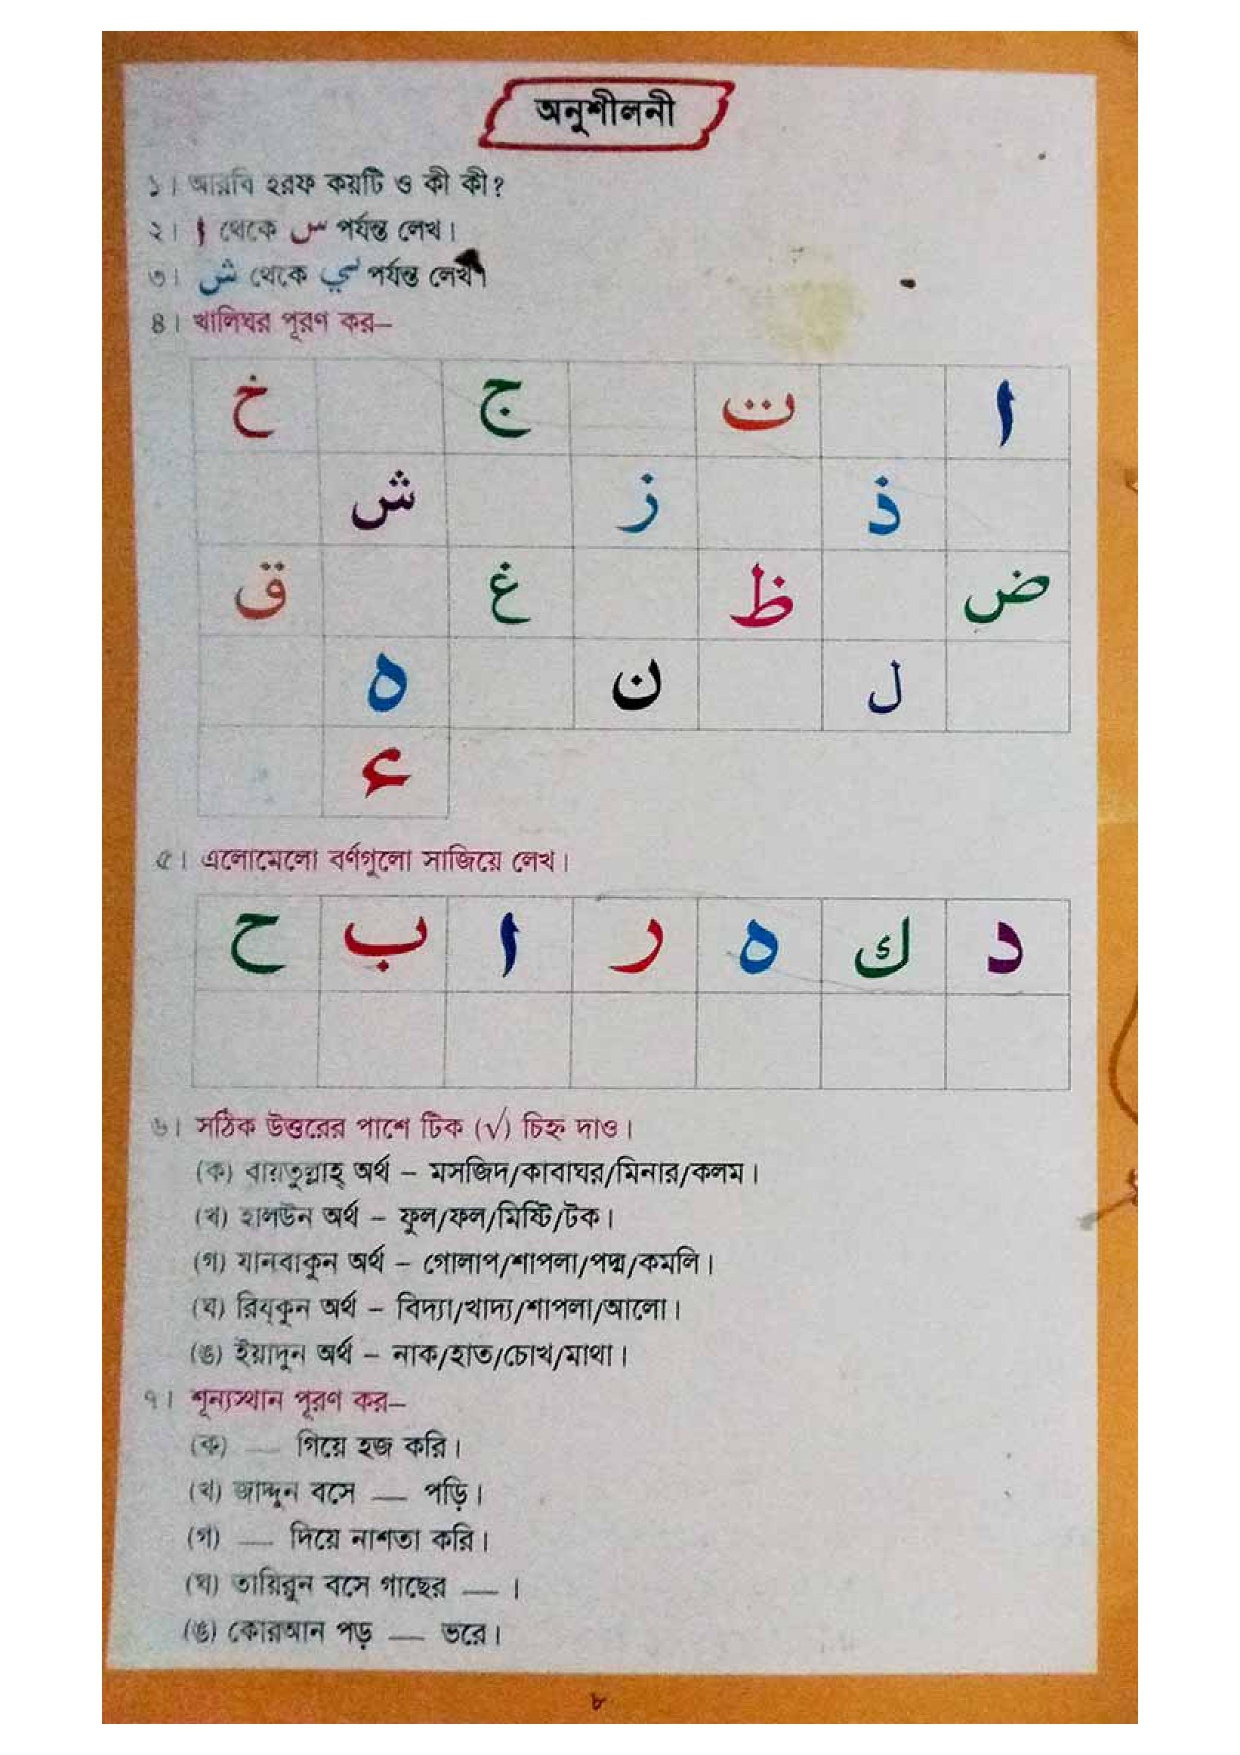 অনুশীলনী
১। আরবি হরফ কয়টি ও কী কী?
২। ا থেকে س পর্যন্ত লেখ।
৩। ش থেকে ي পর্যন্ত লেখ।
৪। খালিঘর পূরণ কর–
ا ت ج خ
ذ ز ش
ض ظ غ ق
ل ن ه
ء
৫। এলোমেলো বর্ণগুলো সাজিয়ে লেখ।
د ك ه ر ا ب ح
৬। সঠিক উত্তরের পাশে টিক (√) চিহ্ন দাও।
(ক) বায়তুল্লাহ্ অর্থ – মসজিদ/কাবাঘর/মিনার/কলম।
(খ) হালউন অর্থ – ফুল/ফল/মিষ্টি/টক।
(গ) যানবাকুন অর্থ – গোলাপ/শাপলা/পদ্ম/কমলি।
(ঘ) রিয্‌কুন অর্থ – বিদ্যা/খাদ্য/শাপলা/আলো।
(ঙ) ইয়াদুন অর্থ – নাক/হাত/চোখ/মাথা।
৭। শূন্যস্থান পূরণ কর–
(ক) — গিয়ে হজ করি।
(খ) জাদ্দুন বসে — পড়ি।
(গ) — দিয়ে নাশতা করি।
(ঘ) তায়িরুন বসে গাছের — ।
(ঙ) কোরআন পড় — ভরে।
৮